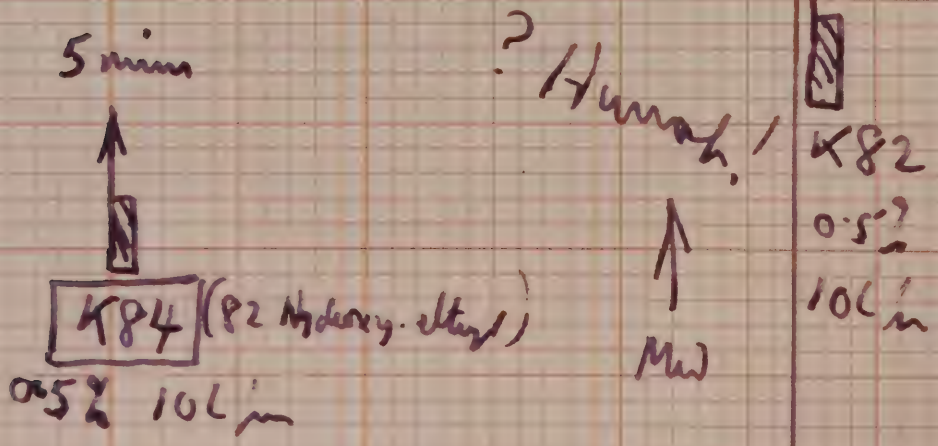 5 min
? Hurrah!
K82
0.5%
10L/m
K84 (82 Hydroxy-ethyl)
MW
0.5% 10L/m